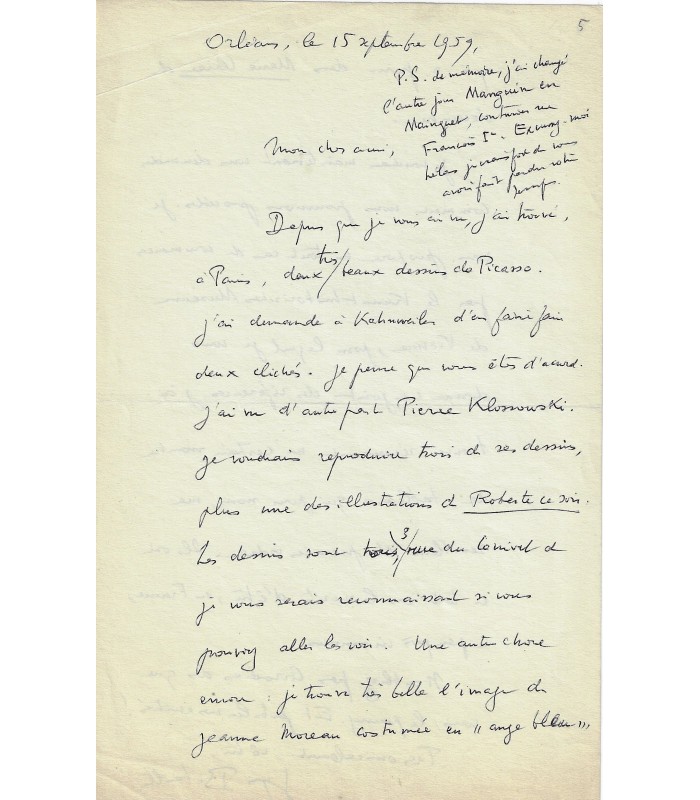 5
Orléans, le 15 septembre 1959,
P.S. de mémoire, j'ai changé
l'autre jour Manguin en
Mainguet, comme rue
François Ier. Excusez-moi
hélas je vous
avoir fait perdre votre
temps.
Mon cher ami,
Depuis que je vous ai vu, j'ai trouvé,
à Paris, deux très beaux dessins de Picasso.
j'ai demandé à Kahnweiler d'en faire faire
deux clichés. je pense que vous êtes d'accord.
j'ai vu d'autre part Pierre Klossowski.
je voudrais reproduire trois de ses dessins,
plus une des illustrations de Roberte ce soir.
Les dessins sont 3, rue du Canivet et
je vous serais reconnaissant si vous
pouviez aller les voir. Une autre chose
encore : je trouve très belle l'image de
jeanne Moreau costumée en "ange bleu"